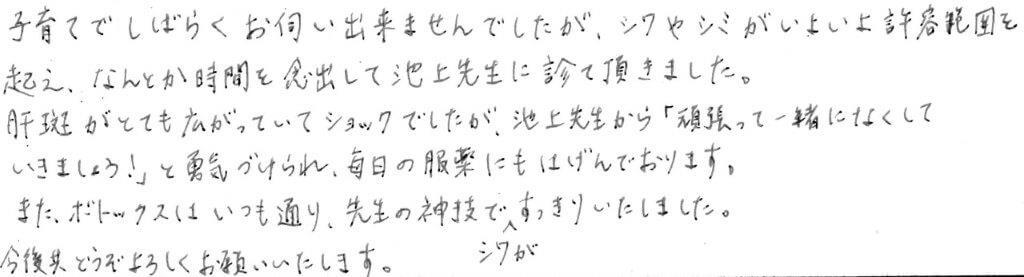 子育てでしばらくお伺い出来ませんでしたが、シワやシミがいよいよ許容範囲を
起え、なんとか時間を念出して池上先生に診て頂きました。
肝斑がとても広がっていてショックでしたが、池上先生から「頑張って一緒になくして
いきましょう!」と勇気づけられ、毎日の服薬にもはげんでおります。
また、ボトックスはいつも通り、先生の神技でシワがすっきりいたしました。
今後共どうぞよろしくお願いいたします。